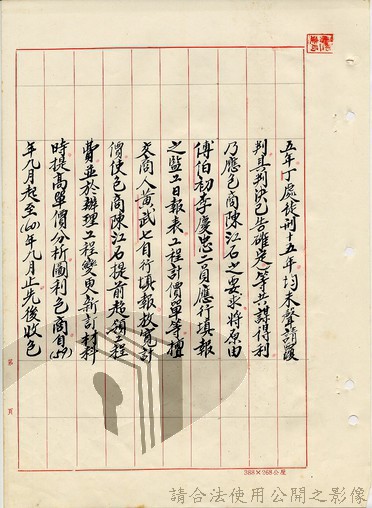 五年丁處徒刑十五年均未聲請覆
判且判決已告確定等共謀得利
乃應包商陳江石之要求將原由
傅伯初李慶忠二員應行填報
之監工日報表工程計價單等擅
交商人黃武七自行填報放寬計
價使包商陳江石提前超領工程
費並於辦理工程變更新訂材料
時提高單價分析圖利包商自(59)
年九月起至(60)年九月止先後收包
第 頁
388×268公厘
請合法使用公開之影像